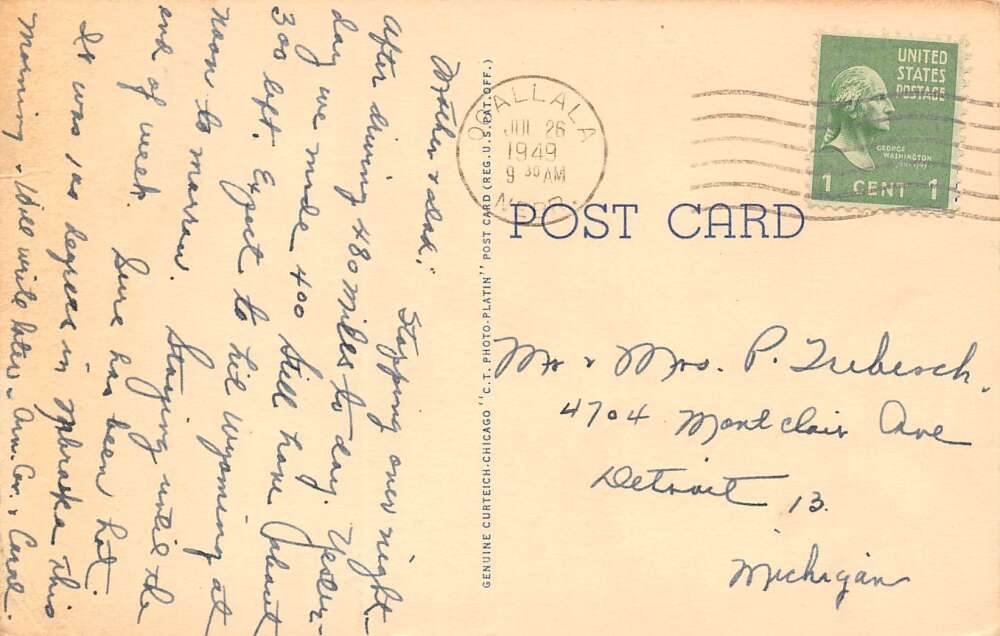 Mother & dad,
Stopping over night
after driving 480 miles to day. Yester-
day we made 400 Still have about
300 left. Expect to hit Wyoming at
noon to morrow. Staying until the
end of week. Sure has been hot.
It was 100 degrees in Nebraska this
Morning. Will write later.

GENUINE CURTEICH-CHICAGO "C.T. PHOTO-PLATIN" POST CARD (REG. U.S. PAT. OFF.)

OGALLALA
JUL 26
1949
9 30 AM
NEBR.

UNITED
STATES
POSTAGE
GEORGE
WASHINGTON
1 CENT 1

POST CARD

Mr & Mrs. P. Trebesch.
4704 Montclair Ave
Detroit 13.
Michigan